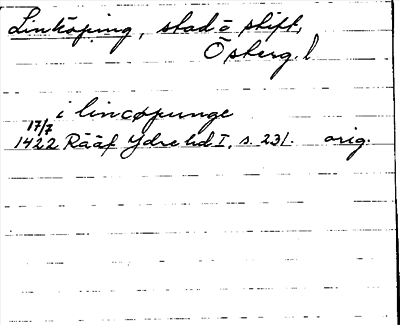 Linköping, stad o stift,
Österg. l
i lincøpunge
17/7
1422 Rääf Ydre hd I, s. 231. orig.